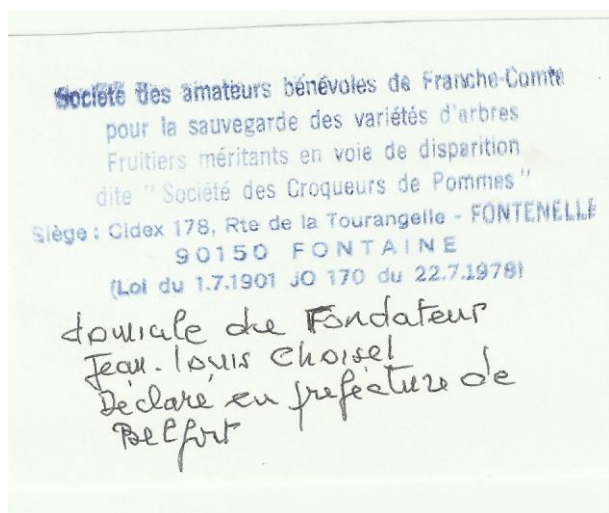 Société des amateurs bénévoles de Franche-Comté
pour la sauvegarde des variétés d'arbres
Fruitiers méritants en voie de disparition
dite "Société des Croqueurs de Pommes"
Siège : Cidex 178, Rte de la Tourangelle - FONTENELLE
90150 FONTAINE
(Loi du 1.7.1901 JO 170 du 22.7.1978)
domicile du Fondateur
Jean-louis Choisel
Déclaré en prefecture de
Belfort